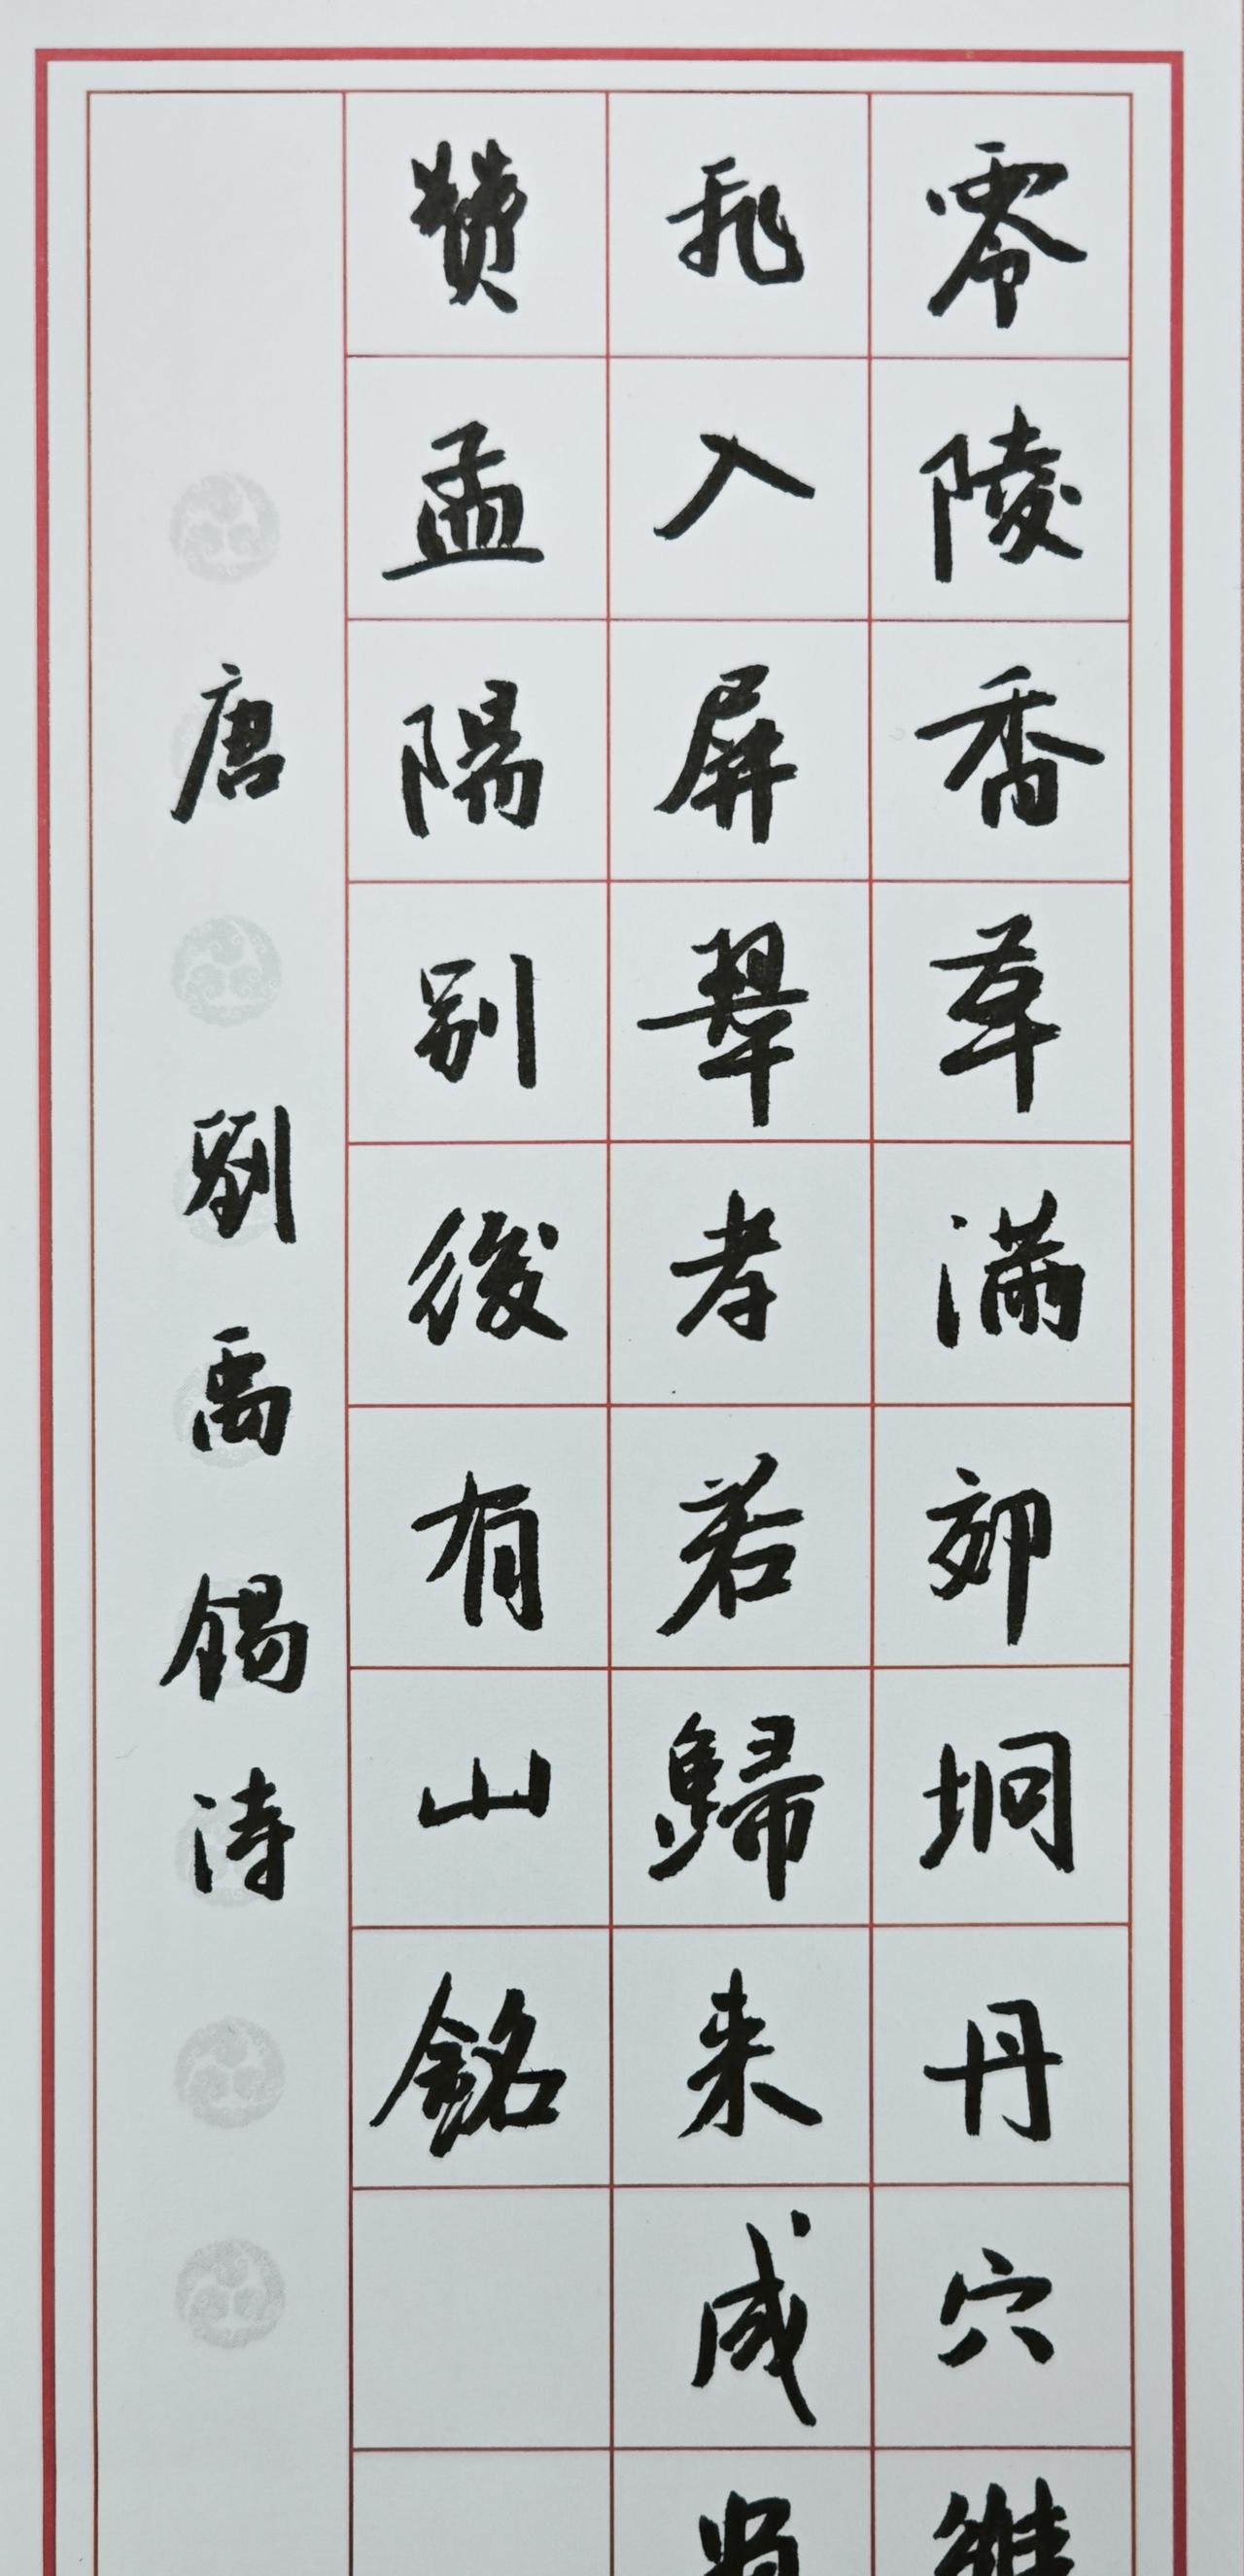 零陵香草滿郊坰丹穴
飛入屏翠孝若歸来成
贊孟陽别後有山銘
唐劉禹錫詩